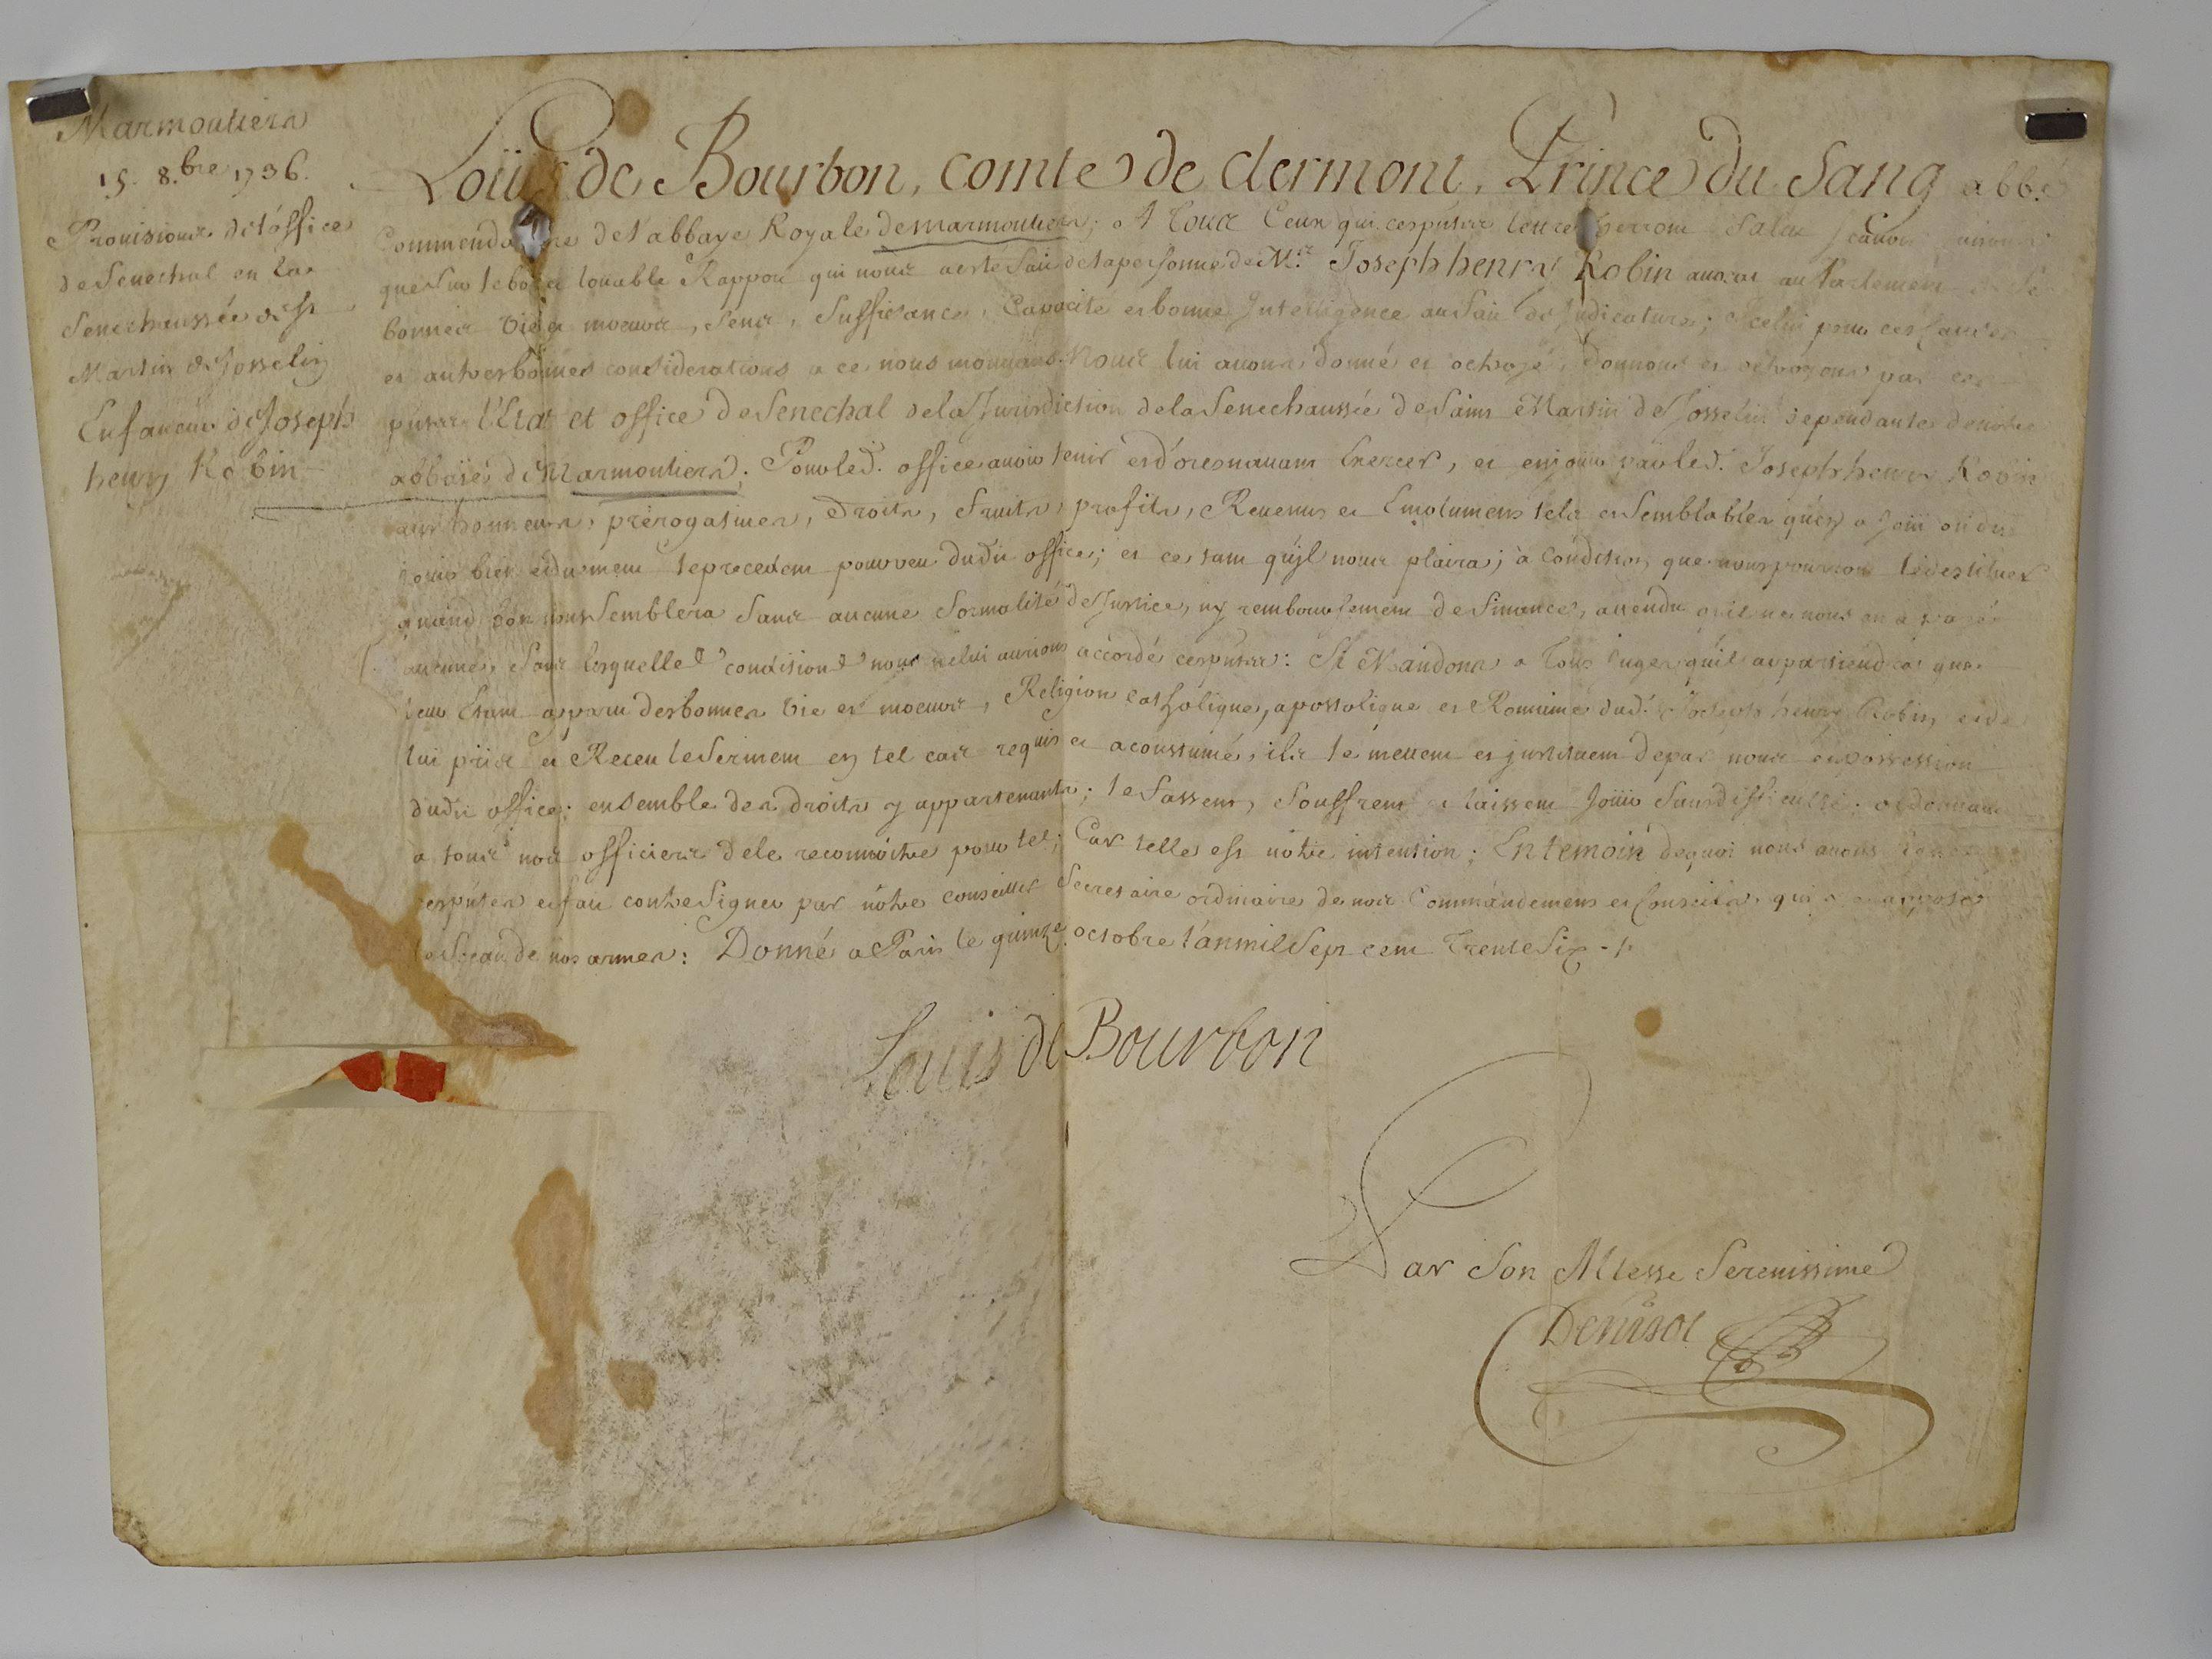 Marmoutiers
15. 8.bre 1736.
Provisions de l'office
de Senechal en la
Senechaussée de St
Martin de Josselin
En faveur de Joseph
henry Robin
Loüis de Bourbon, comte de clermont, Prince du Sang abbé
Commendataire de l'abbaye Royale de marmoutiers; A Tous Ceux qui ces pntes lettres verront Salut Sçavoir faisons
que Sur le bon et louable Rapport qui nous a esté fait de la personne de Mr. Joseph henry Robin avocat au Parlement de Ses
bonnes vie et moeurs, Sens, Suffisance, Capacité et bonne Intelligence au fait de Judicature; Icelui pour ces Causes
et autres bonnes considerations a ce nous mouvans. Nous lui avons donné et octroyé, donnons et octroyons par ces
pntes l'Etat et office de Senechal de la Jurisdiction de la Senechaussée de Saint Martin de Josselin dependante de notre
abbaïe de Marmoutiers; Pour led. office avoir tenir et d'oresnavant Exercer, et en joüir par led. Joseph henry Robin
aux honneurs, prérogatives, Droits, fruits, profits, Revenus et Emolumens tels et Semblables qu'en a Joüi ou dû
joüir bien et duement le precedent pourveu dudit office; et ce tant qu'il nous plaira; à Condition que nous pourrons le destituer
quand bon nous Semblera Sans aucune formalité de Justice, ny remboursement de finance, attendu qu'il ne nous en a payé
aucune, Sans lesquelles conditions nous ne lui aurions accordé ces pntes: Si Mandons a Tous Juges qu'il appartiendra que
leur Etant apparu des bonnes vie et moeurs, Religion catholique, apostolique et Romaine dud. Joseph henry Robin, et de
lui pris et Receu le Serment en tel cas requis et acoustumé, ils le mettent et instituent de par nous en possession
dudit office; ensemble des droits y appartenants; le fassent, Souffrent et laissent Joüir Sans difficulté; ordonnant
a tous nos officiers de le reconnoitre pour tel; Car telle est nôtre intention; En temoin de quoi nous avons signé
ces pntes et fait contresigner par nôtre conseiller Secretaire ordinaire de nos Commandemens et Conseils, qui y a apposé
le Sceau de nos armes: Donné a Paris le quinze octobre l'an mil Sept cent Trente Six
Louis de Bourbon
Par Son Altesse Serenissime